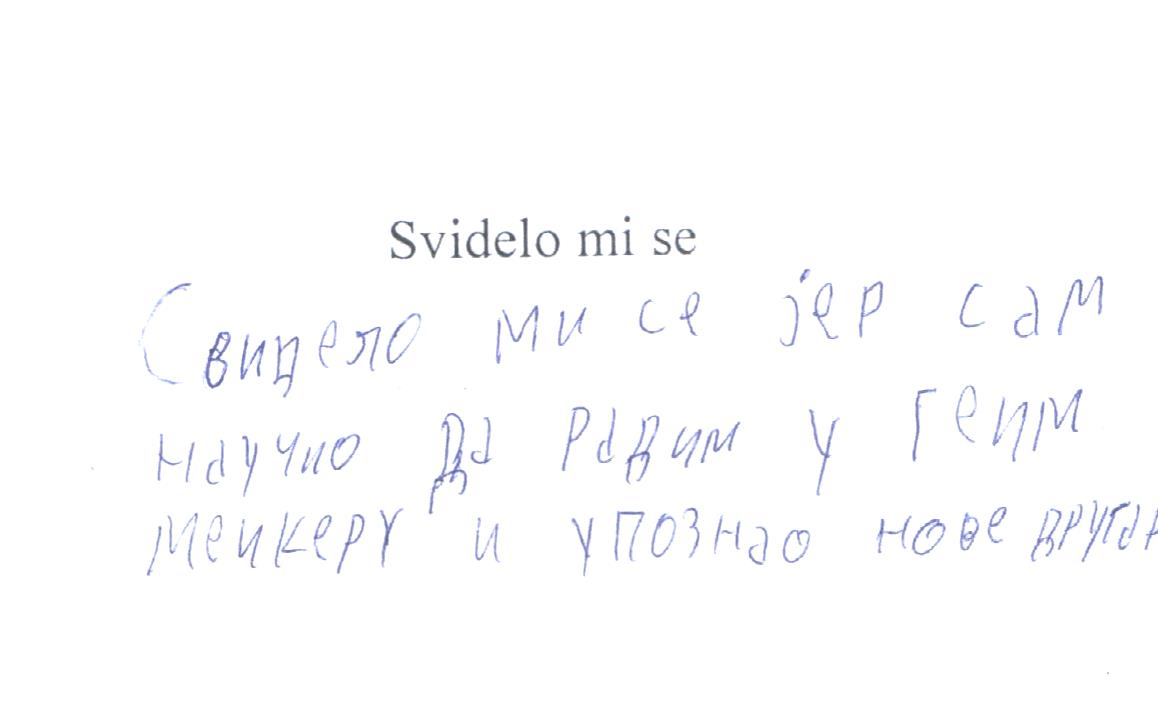 Svidelo mi se
Свидело ми се јер сам
научио да радим у геим
меикеру и упознао нове